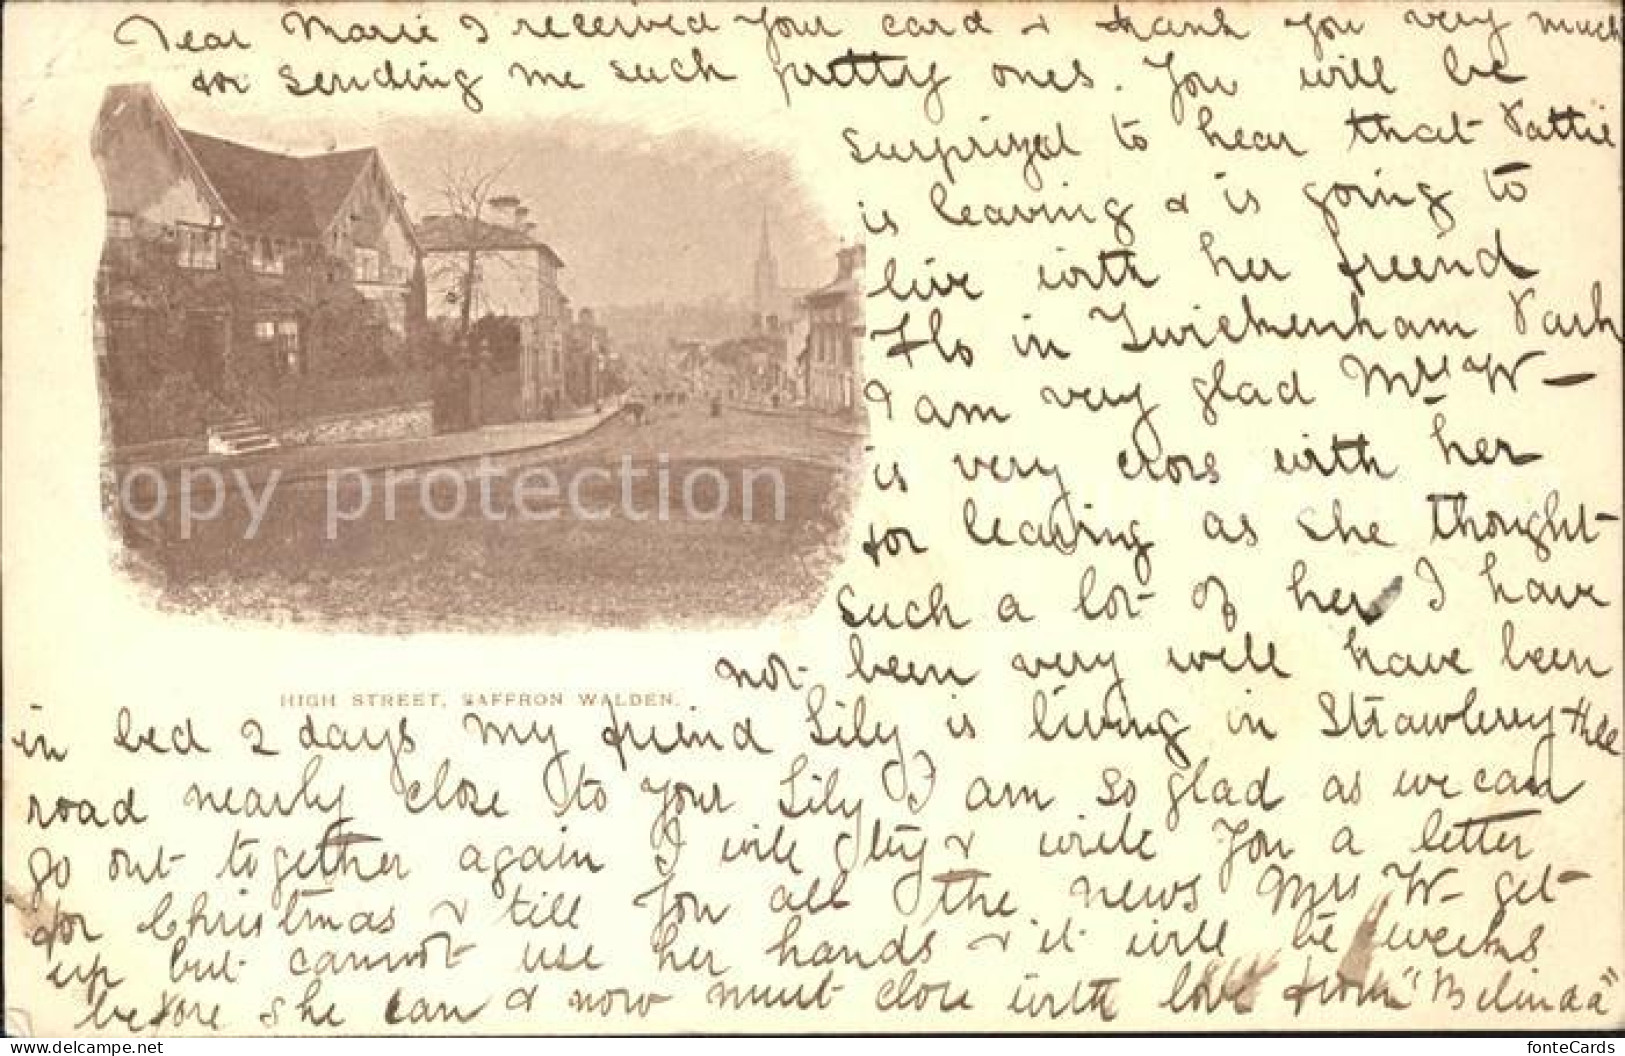 Dear Marie I received your card & thank you very much
for sending me such pretty ones. You will be
surprized to hear that Pattie
is leaving & is going to
live with her freend
Flo in Twickenham Park
I am very glad Mrs W-
is very cross with her
for leaving as she thought
such a lot of her I have
not been very well have been
HIGH STREET, SAFFRON WALDEN.
in bed 2 days my friend Lily is living in Strawberry Hill
road nearly close to your Lily I am so glad as we can
go out together again I will try & write you a letter
for Christmas & till you all the news Mrs W- get
up but cannot use her hands & it will be weeks
before she can & now must close with love from "Belinda"
copy protection
www.delcampe.net
fonteCards